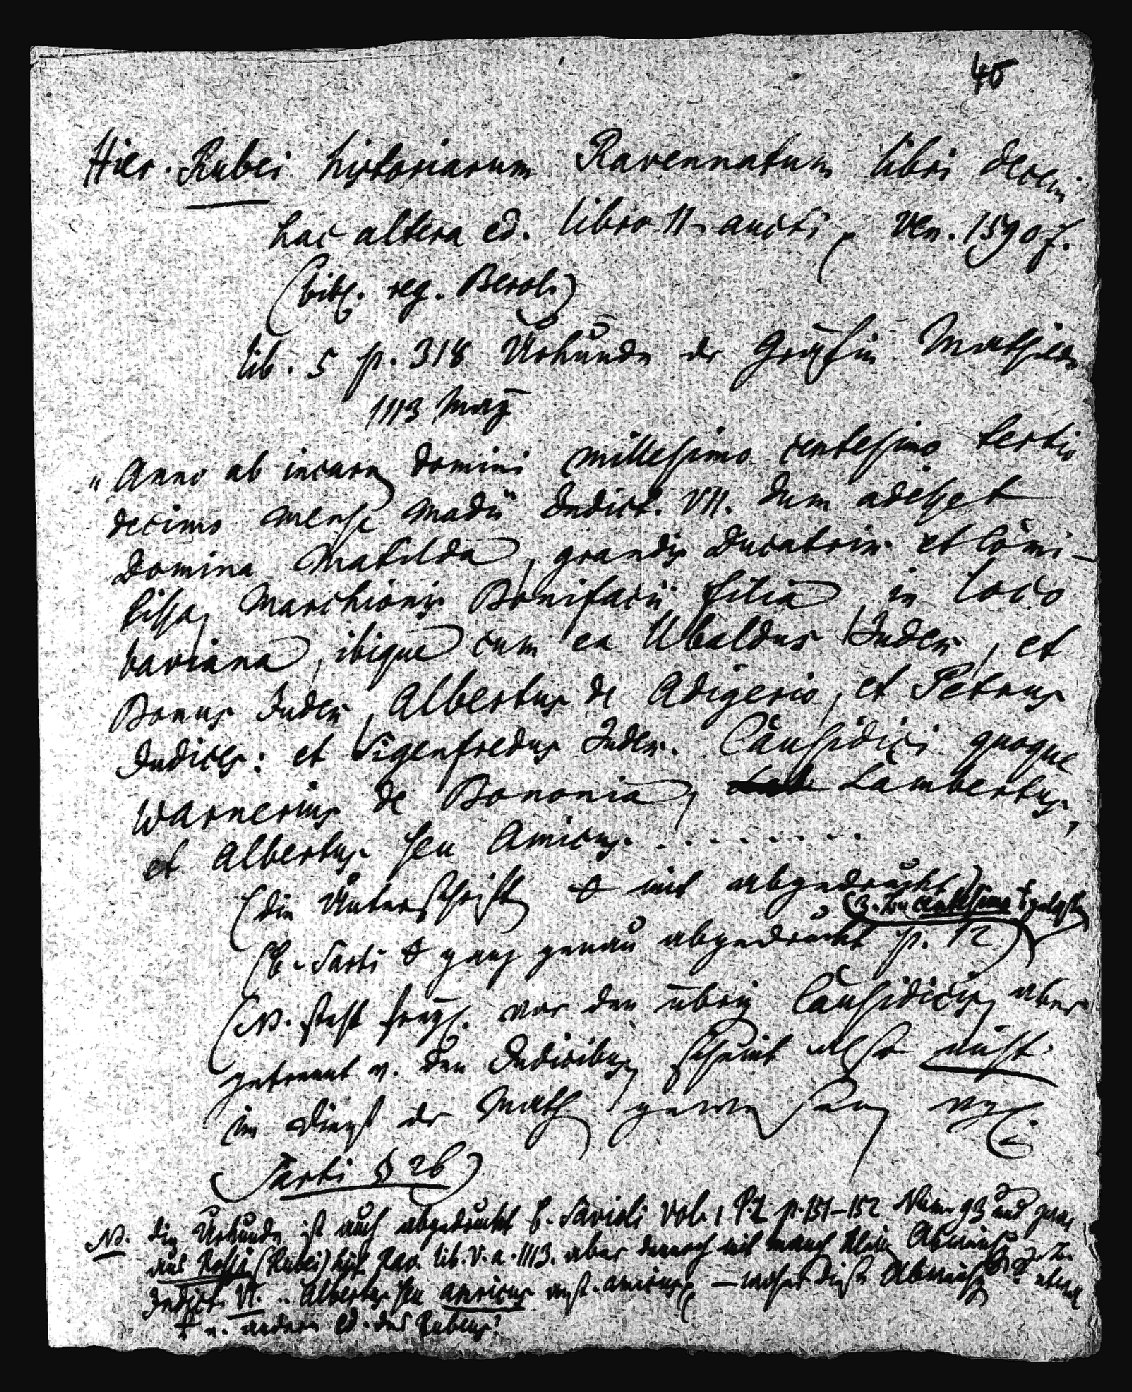 45
Hier. Rubei historiarum Ravennatum libri decem
hac altera ed. libro 11. aucti, Ven. 1590 f.
(bibl. reg. Berol.)
lib. 5 p. 318 Urkunde der Gräfin Mathilde
1113 May
"Anno ab incarn domini millesimo centesimo tertio
decimo mense Madii Indict. VII. dum adesset
Domina Matilda, grandis Ducatrix et Comi-
tissa, Marchionis Bonifacii filia, in loco
bariana, ibique cum ea Ubaldus Iudex, et
Bonus Iudex, Albertus de Adigerio, et Petrus
Iudices: et Sigenfredus Iudex. Causidici quoque
Warnerius de Bononia, Lambertus,
et Albertus seu Amicus. . . . . . . .
(die Unterschrift + nicht abgedruckt)
(b. Sarti + ganz genau abgedruckt p. 12)
(W. steht vor den übrig Causidicis, aber
getrennt v. den Iudicibus, scheint also nicht
im Dienst der Math gewesen
Sarti § 26)
NB. die Urkunde ist auch abgedruckt b. Savioli vol. 1 P. 2 p. 151–152 Num. 93 und zwar
aus Rossi (Rubei) hist. Rav. lib. V. a. 1113. aber dennoch mit manch
Indict. VI. .. Albertus seu amricus anst. amicus –
+ v. andern ed. des Rubeus?